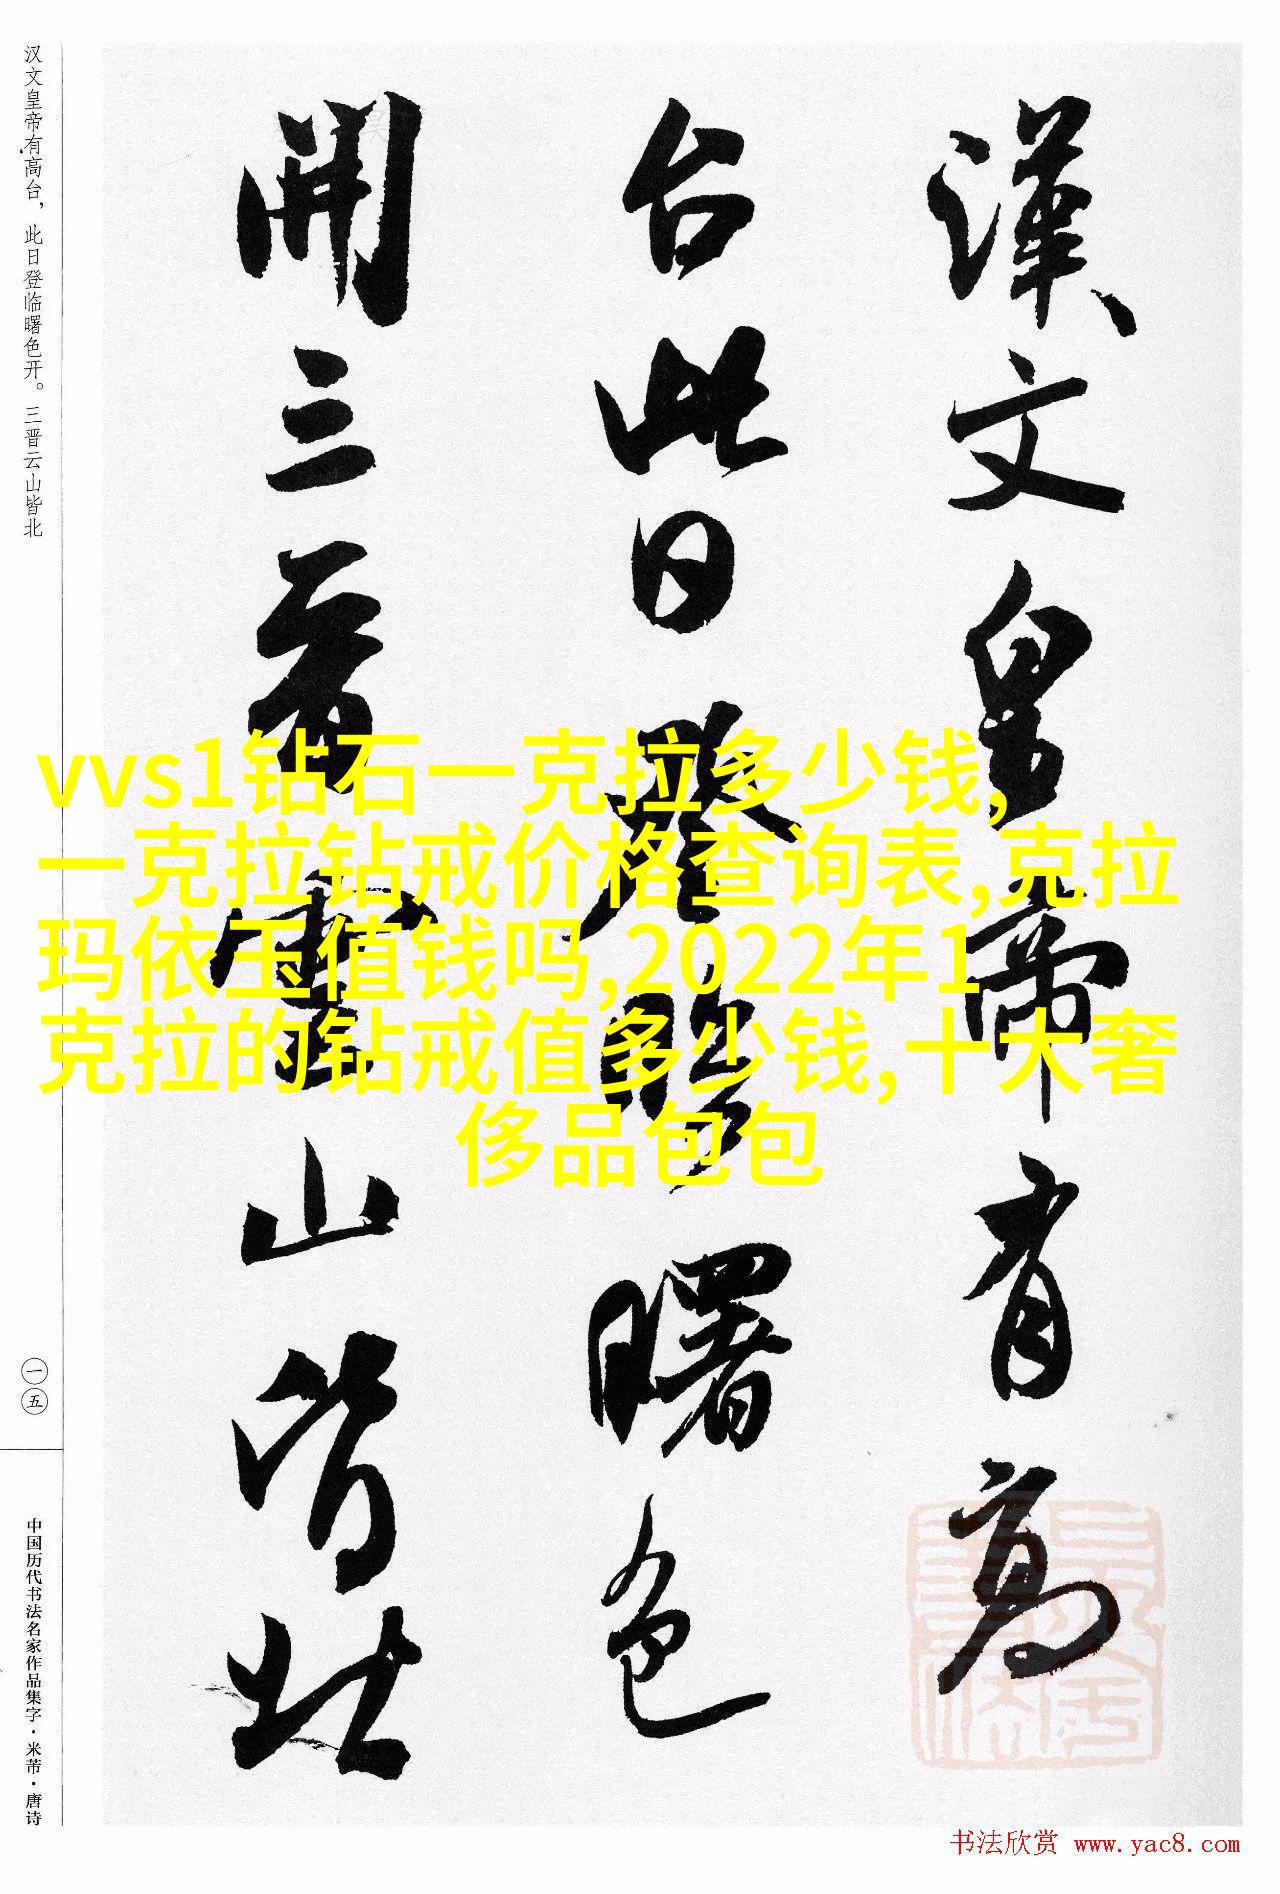 汉文皇帝有高台，此日登临曙色开。三晋云山皆北
漢文皇帝有高
台此日登臨曙色
開三晉雲山皆北
vvs1钻石一克拉多少钱,
一克拉钻戒价格查询表,克拉
玛依玉值钱吗,2022年1
克拉的钻戒值多少钱,十大奢
侈品包包
一五
中国历代书法名家作品集字·米芾·唐诗
书法欣赏 www.yac8.com